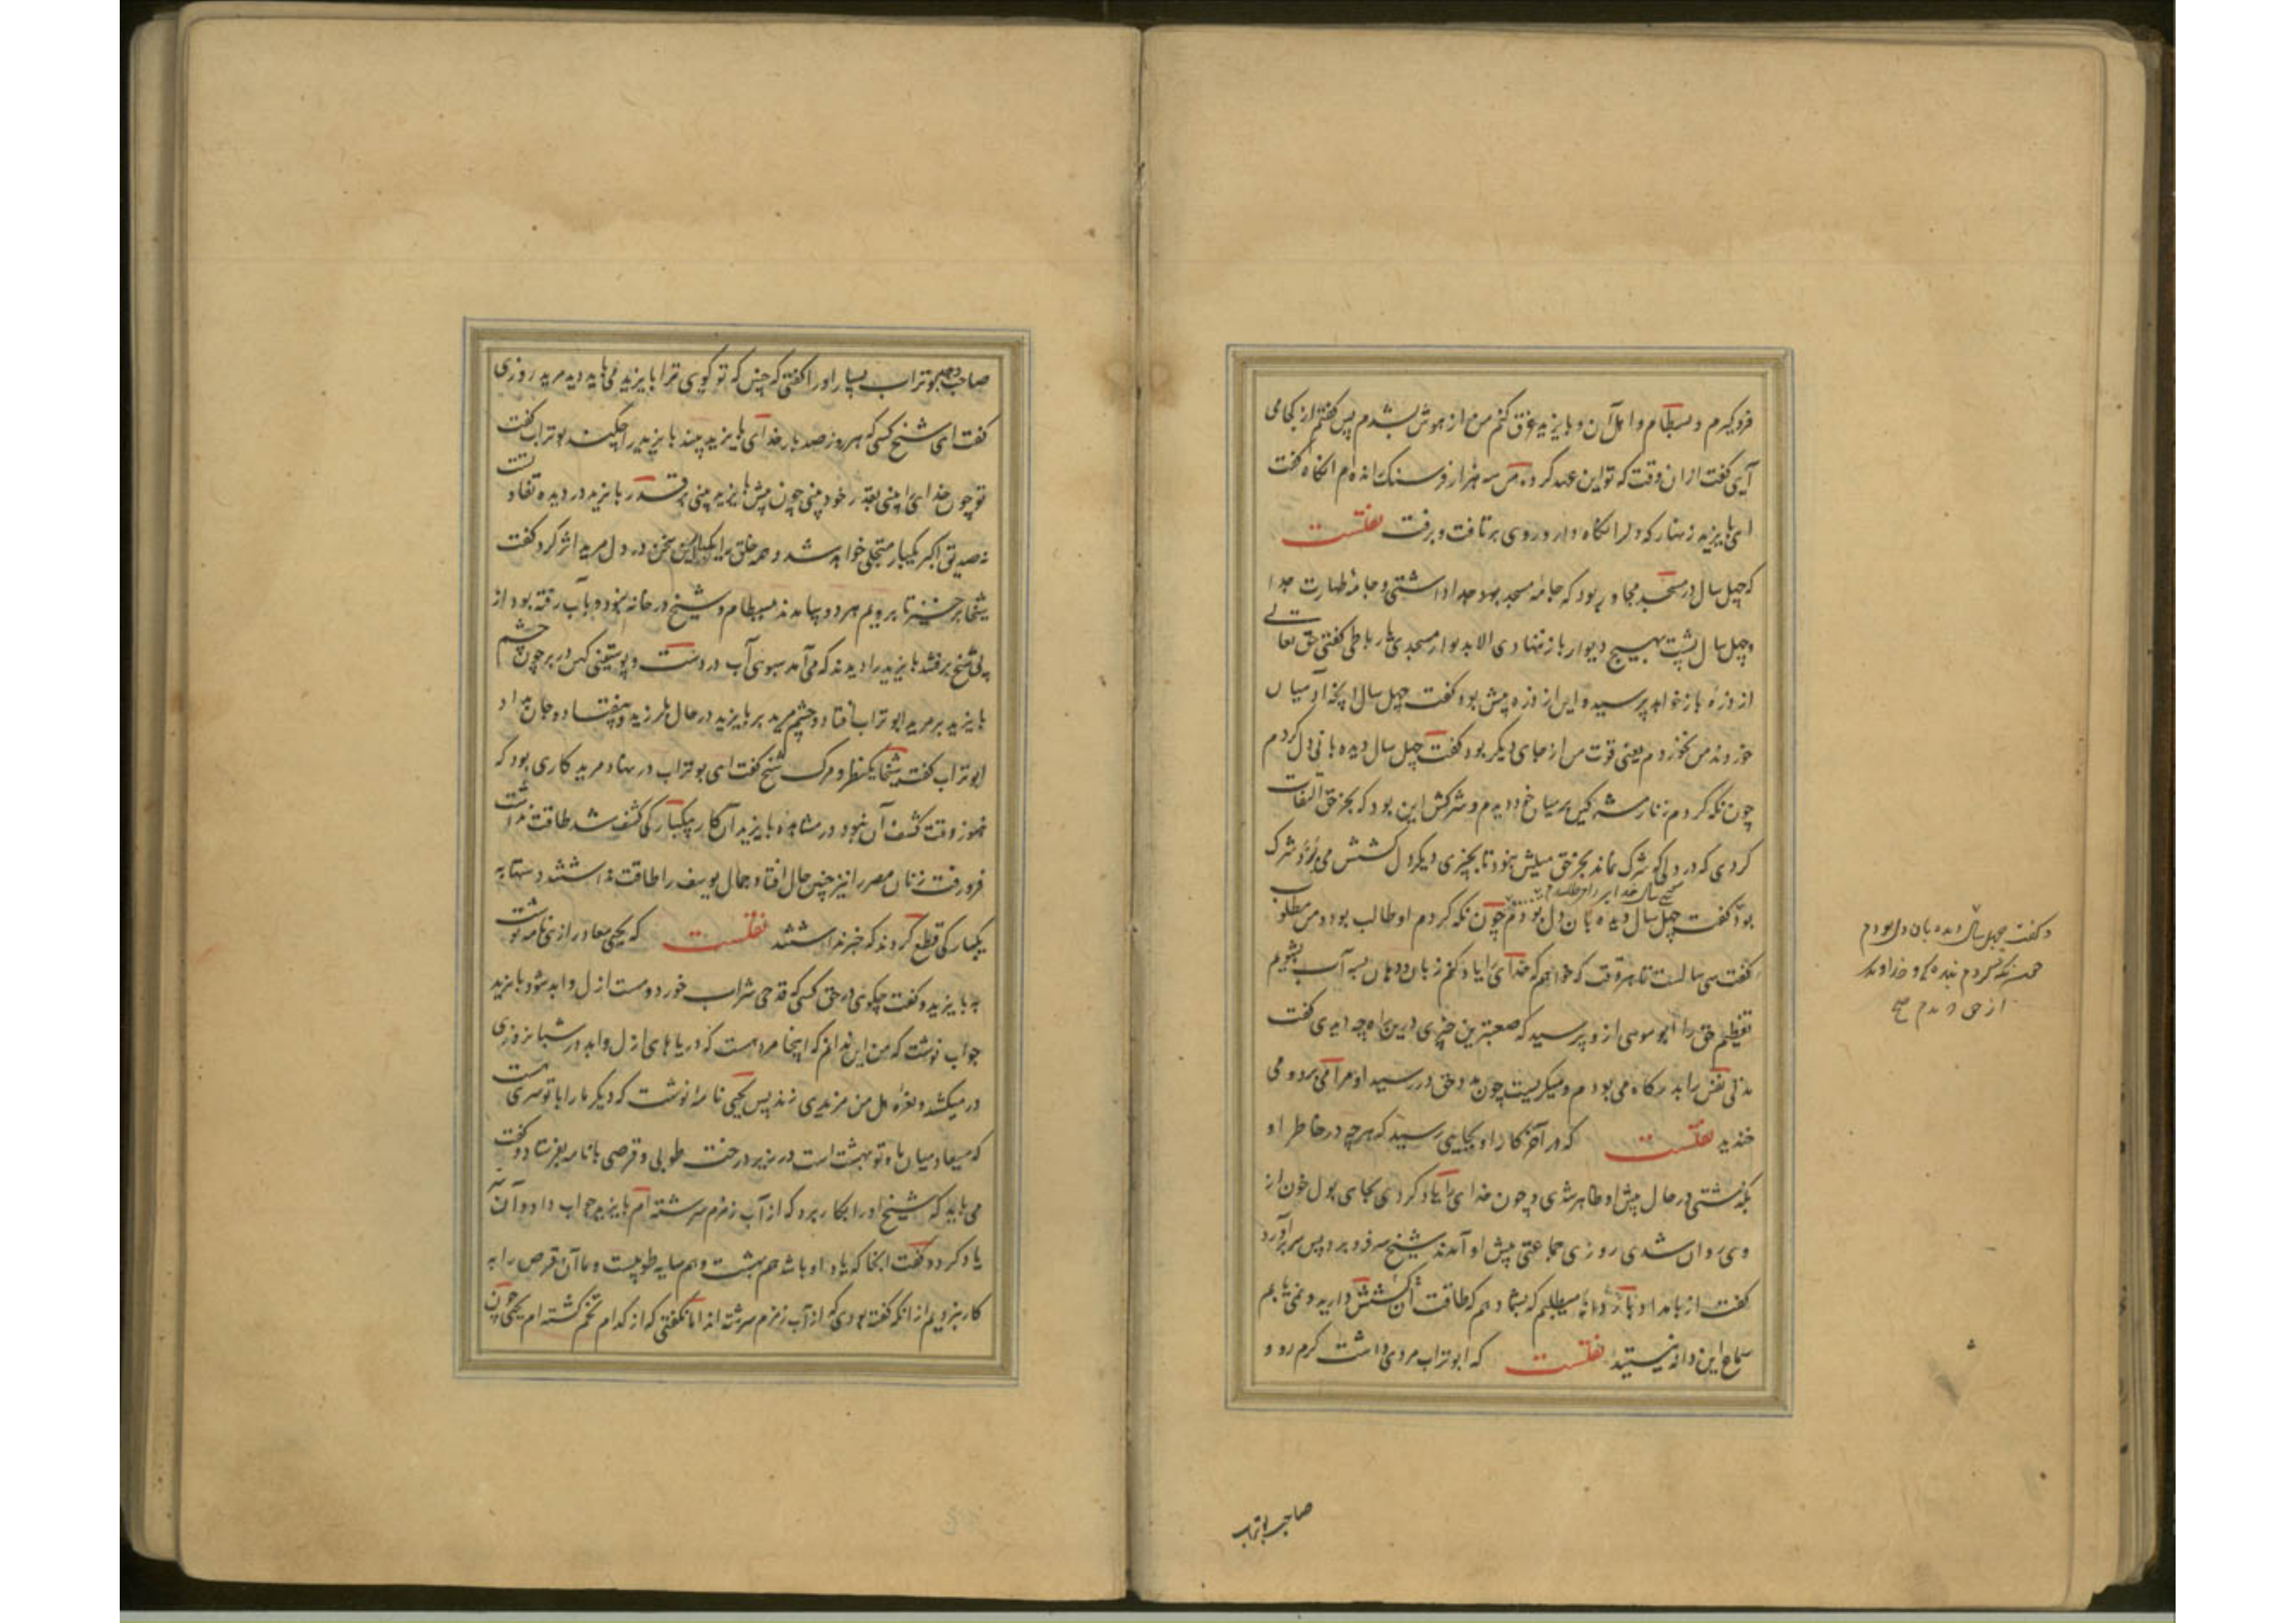 فروگیرم و بسطام و اهل آن و بایزید غرق کنم من از هوش بشدم پس گفتم از کجا می
آیی گفت از ان وقت که تو این عهد کرده من سه هزار فرسنگ آمده ام انگاه گفت
ای بایزید زنهار که دل را نگاه دار و روی برتافت و برفت نقلست
که چهل سال در مسجد مجاور بود که جامه مسجد بود جدا داشتی و جامه طهارت جدا
و چهل سال پشت بهیچ دیوار باز ننهادی الا بدیوار مسجدی یا رباطی گفتی حق تعالی
از ذره باز خواهد پرسید و این از ذره بیش بود گفت چهل سال انچه آدمیان
خوردند من نخوردم یعنی قوت من از جای دیگر بود گفت چهل سال دیده بانی دل کردم
چون نگه کردم زنار مشرکی بر میان خود دیدم و شرکش این بود که بجز حق التفات
کردی که در دلی که شرک نماند بجز حق میلش نبود تا بچیزی دیگر دل کشش می بود شرک
بود گفت چهل سال دیده بان دل بودم چون نگه کردم او طالب بود و من مطلوب
گفت سی سالست تا هر وقت که خواهم که خدای را یاد کنم زبان و دهان بسه آب بشویم
تعظیم حق را ابو موسی از و پرسید که صعبترین چیزی درین راه چه دیدی گفت
مدتی نفس را بدرگاه می بودم و میگریست چون مدد حق در رسید او مرا می برد و می
خندید نقلست که در آخر کار او بجایی رسید که هرچه در خاطر او
بگذشتی در حال پیش او ظاهر شدی و چون خدای را یاد کردی بجای بول خون از
وی روان شدی روزی جماعتی پیش او آمدند شیخ سر فرو برد پس سر برآورد
گفت از بامداد باز دانه میطلبم که بشما دهم که طاقت آن کشش دارید و نمی یابم
سماع این دانه نیستید نقلست که ابو تراب مریدی داشت گرم رو و
و گفت چهل سال دیده بان دل بودم
چون نگه کردم بندگی و خداوندی
از حق دیدم صح
صاحب بوتراب
صاحب وجد بوتراب بسیار او را گفتی که چنین که تو گویی ترا بایزید می باید دید مرید روزی
گفت ای شیخ کسی که هر روز صد بار خدای بایزید بیند بایزید را چکند بوتراب گفت
تو چون خدای را بینی بقدر خود بینی چون پیش بایزید بینی بر قدر بایزید در دیده تفاوتست
نه صدیق اکبر یکبار متجلی خواهد شد و همه خلق را یکبار این سخن در دل مرید اثر کرد گفت
شیخا برخیز تا برویم هر دو بیامدند ببسطام و شیخ در خانه نبود و بآب رفته بود از
پی شیخ برفتند بایزید را دیدند که می آمد سبوی آب در دست و پوستینی کهن در بر چون چشم
بایزید بر مرید ابو تراب افتاد و چشم مرید بر بایزید در حال بلرزید و بیفتاد و جان بداد
ابو تراب گفت شیخا یک نظر و مرگ شیخ گفت ای بوتراب در نهاد مرید کاری بود که
هنوز وقت کشف آن نبود در مشاهده بایزید آن کار یکبارگی کشف شد طاقت نداشت
فرو رفت زنان مصر را نیز چنین حال افتاد جمال یوسف را طاقت نداشتند دستها به
یکبارگی قطع کردند که خبر نداشتند نقلست که یحیی معاذ رازی نامه نوشت
به بایزید و گفت چگویی در حق کسی که قدحی شراب خورد و مست ازل و ابد شود بایزید
جواب نوشت که من این ندانم که اینجا مرد هست که دریاهای ازل و ابد در شبانروزی
در میکشد و نعره هل من مزید می زند پس یحیی نامه نوشت که دیگر ما را با تو سری هست
که میعاد میان ما و تو بهشت است در زیر درخت طوبی و قرصی با نامه بفرستاد و گفت
می باید که شیخ او را بکار برد که از آب زمزم سرشته ام بایزید جواب داد و آن سر
یاد کرد و گفت انجا که یاد او باشد هم بهشت و هم سایه طوبیست و ما آن قرص را به
کار نبریم از انکه گفته بودی که از آب زمزم سرشته اند اما نگفتی که از کدام تخم کشته ام یحیی چون